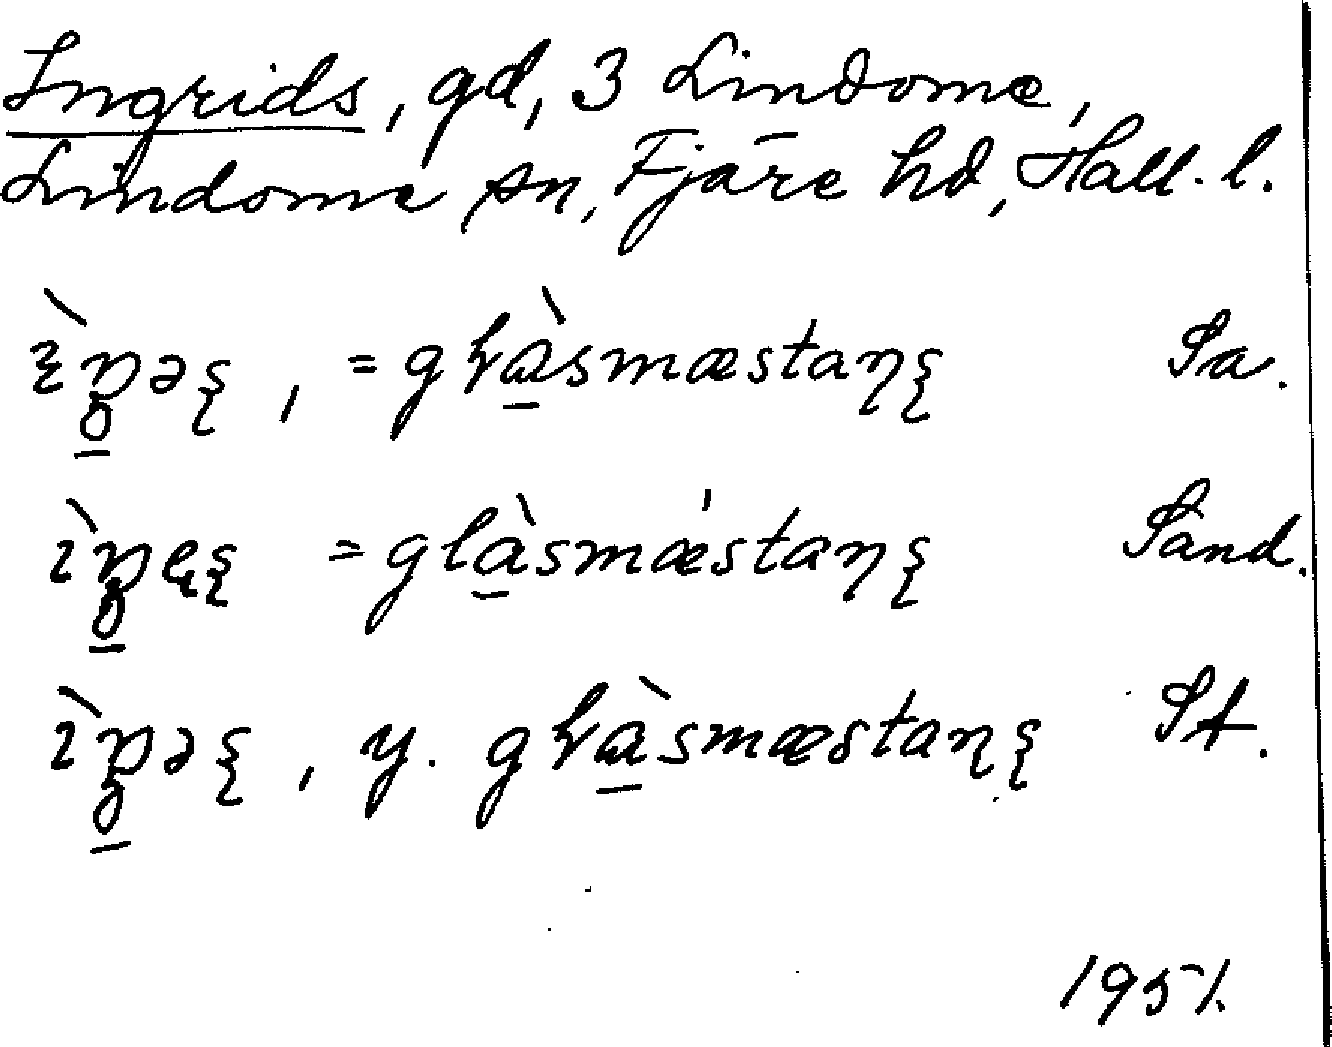 Ingrids, gd, 3 Lindome,
Lindome sn, Fjäre hd, Hall. l.
ɩ̀ŋ̱əʂ, = gɫà̱smæstaɳʂ Sa.
ɩ̀ŋ̱ęʂ = glà̱smæ̍staɳʂ Sand.
ɩ̀ŋ̱əʂ, y. gɫà̱smæstaɳʂ St.
1951.